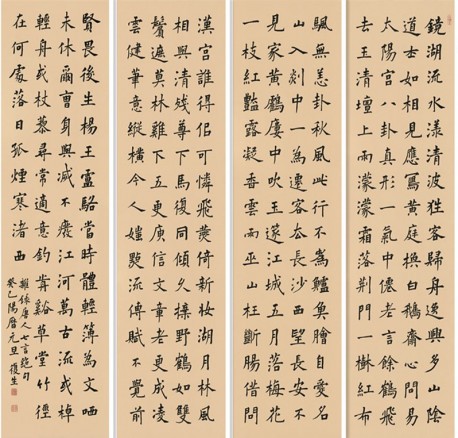 鏡湖流水漾清波狂客歸舟逸興多山陰
道士如相見應寫黄庭換白鵝齋心
太陽宮八卦真形一氣中老言餘鶴飛
去玉清壇上雨濛濛霜落荆門樹布
帆無恙掛秋風此行不為鱸魚膾自愛名
山入剡中一為遷客去長沙西望長安不
見家黄鶴樓中吹玉笛江城五月落梅花
一枝紅豔露凝香雲雨巫山枉斷腸借問
漢宮誰得似可憐飛燕倚新妝湖月林風
相與清殘尊下馬復同傾久擯野鶴如雙
鬢遮莫鄰雞下五更庾信文章老更成凌
雲健筆意縱橫今人嗤點流傳賦不覺前
賢畏後生楊王盧駱當時體輕薄為文哂
未休爾曹身與滅不廢江河萬古流或棹
輕舟或杖藜尋常適意釣前谿草堂竹徑
在何處落日孤煙寒渚西
雜錄唐人七言絕句
癸巳陽曆元旦復生